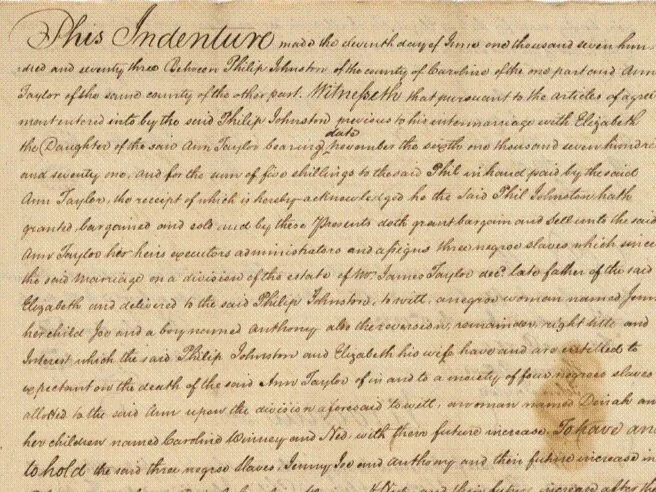 This Indenture made the eleventh day of June one thousand seven hun
dred and seventy three Between Philip Johnston of the county of Caroline of the one part and Ann
Taylor of the same county of the other part. Witnesseth that pursuant to the articles of agree
ment entered into by the said Philip Johnston previous to his intermarriage with Elizabeth
the Daughter of the said Ann Taylor bearing date november the sixth one thousand seven hundred
and seventy one, and for the sum of five shillings to the said Phil in hand paid by the said
Ann Taylor, the receipt of which is hereby acknowledged he the Said Phil Johnston hath
granted, bargained and sold and by these Presents doth grant bargain and Sell unto the said
Ann Taylor her heirs executors administrators and assigns three negroe slaves which since
the said marriage on a division of the estate of Mr James Taylor decd. late father of the said
Elizabeth and delivered to the said Philip Johnston, to wit, a negroe woman named Jenny
her child Joe and a boy named Anthony also the reversion, remainder, right title and
Interest which the said Philip Johnston and Elizabeth his wife have and are entitled to
expectant on the death of the said Ann Taylor of in and to a moiety of four negroes slaves
allotted to the said Ann upon the division aforesaid to wit, a woman named and
her children named Caroline and Ned, with their future increase. To have and
to hold the said three negroe Slaves, Jenny Joe and Anthony and their future increase
and their future increase after the